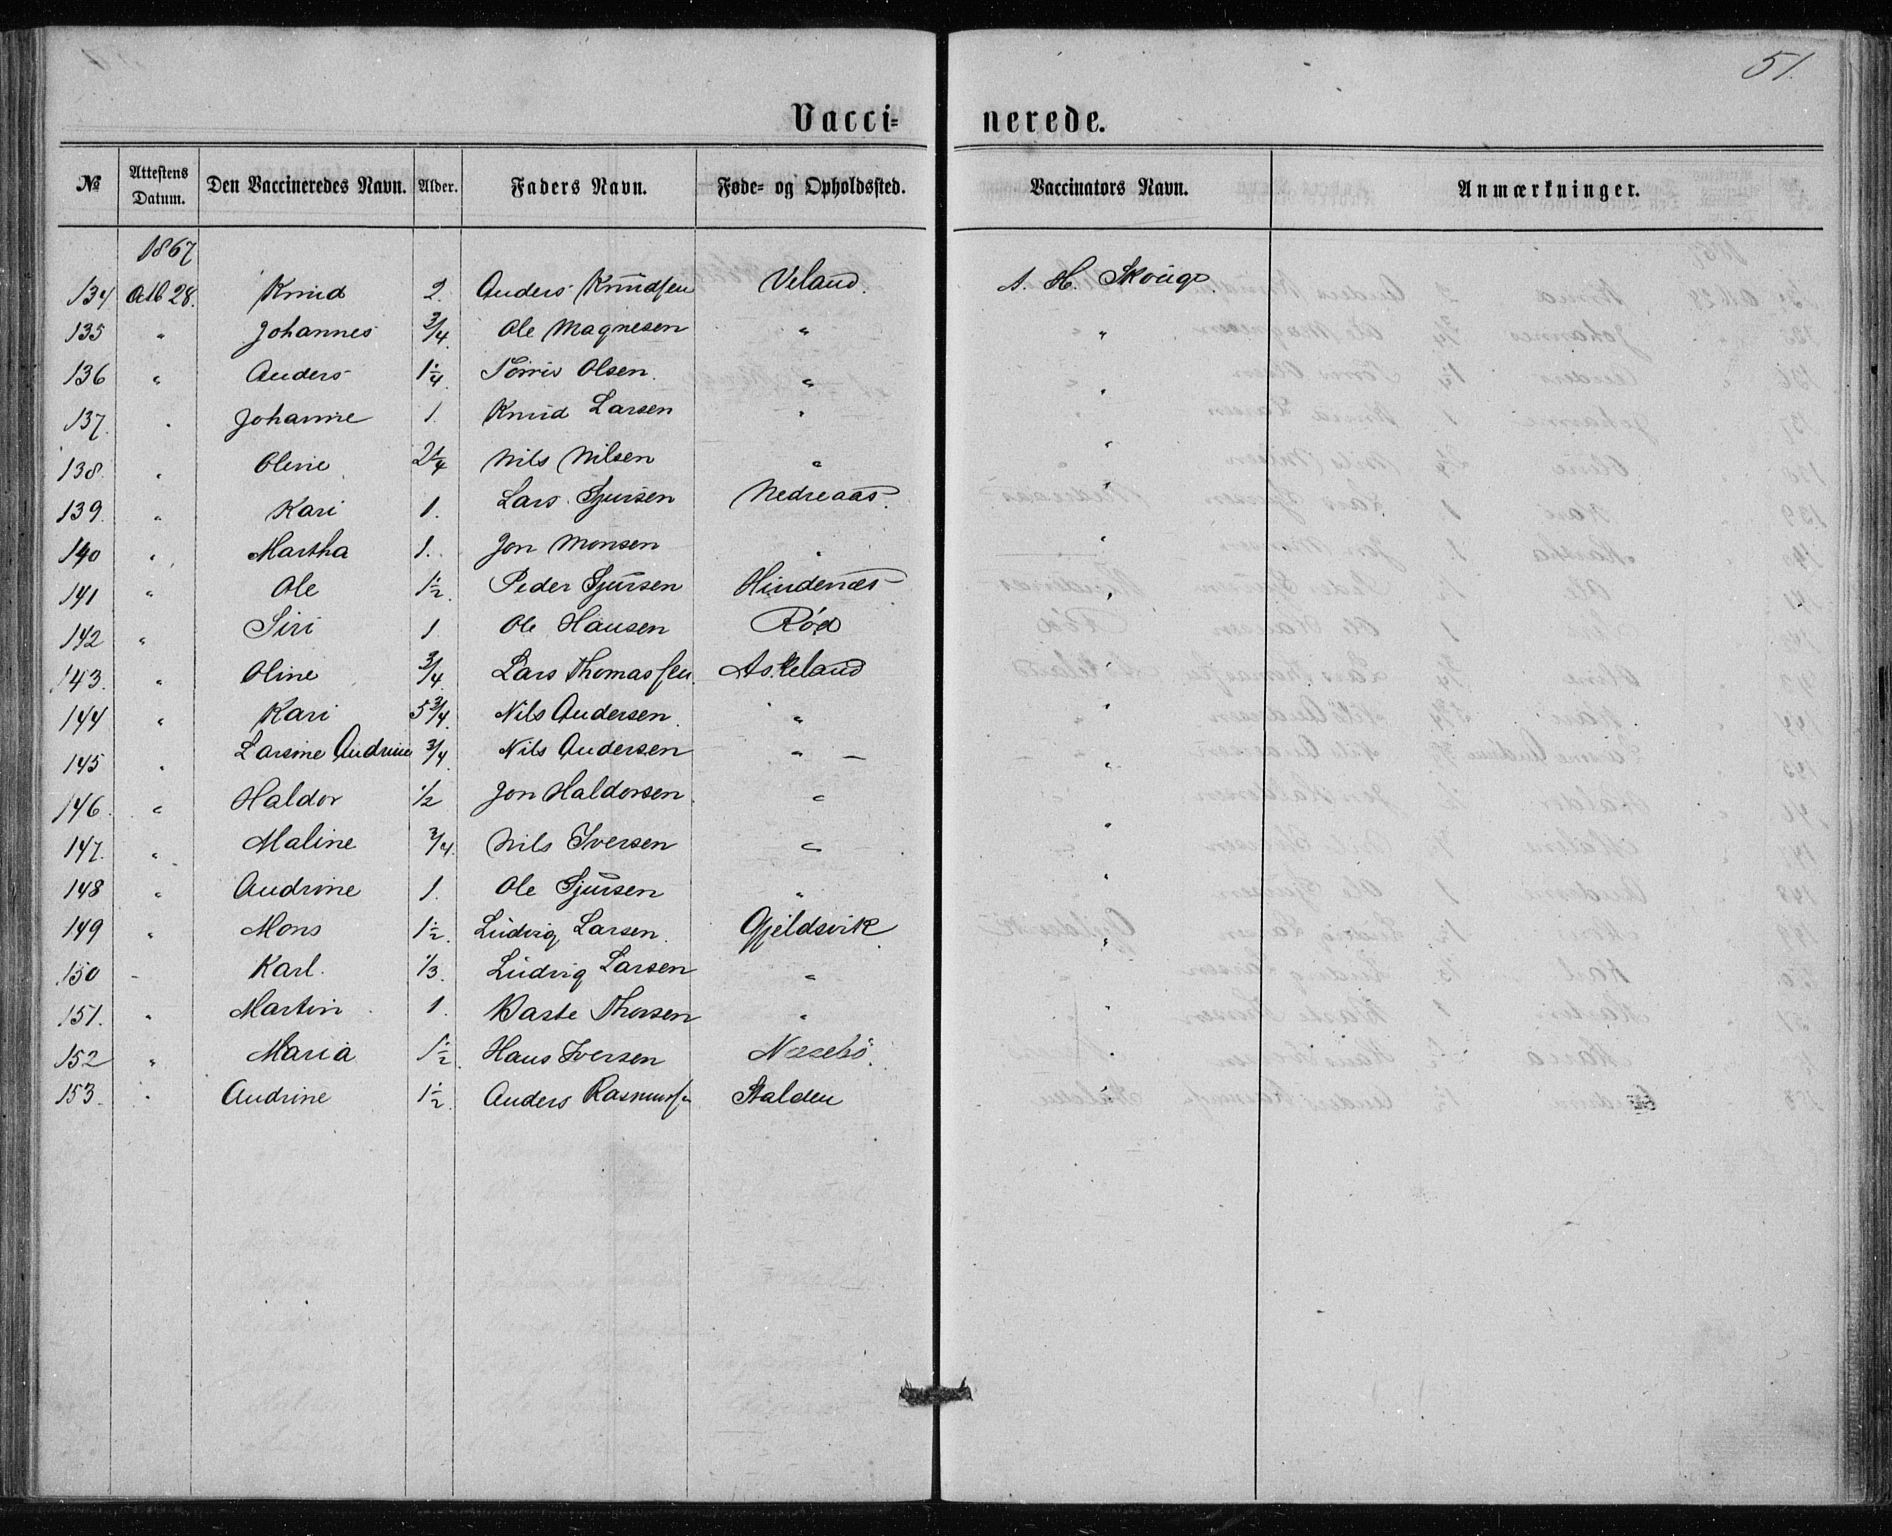 51.
Vacci- nerede.
№ Attestens Datum. Den Vaccineredes Navn. Alder. Faders Navn. Føde- og Opholdssted. Vaccinators Navn. Anmærkninger.
1867
134 28. Knud 2. Anders Knudsen Veland. A. H. Skouge.
135 " Johannes 3/4. Ole Magnesen " "
136 " Anders 1 1/4. Olsen. " "
137. " Johanne 1. Knud Larsen " "
138. " Oline 2 1/4 Nils Nilsen " "
139. " Kari 1. Lars Sjursen Nedreaas. "
140 " Martha 1. Jon Monsen " "
141 " Ole 1 1/2. Peder Sjursen Hindenæs "
142 " Siri 1 Ole Hansen Röd "
143. " Oline 3/4. Lars Thomassen. Askeland "
144 " Kari 5 3/4. Nils Andersen. " "
145 " Larsine Andrine 3/4. Nils Andersen " — "
146. " Haldor 1/2 Jon Haldorsen. " "
147. " Maline 3/4. Nils Iversen " "
148 " Andrine 1. Ole Sjursen " "
149 " Mons 1 1/2. Ludvig Larsen. Gjeldsvik. "
150 " Karl. 1/3. Ludvig Larsen " "
151. " Martin 1. Baste Thorsen " "
152 " Maria 1 1/2. Hans Iversen Næsebö. "
153. " Andrine 1 1/2. Anders Rasmuss. Stalden "